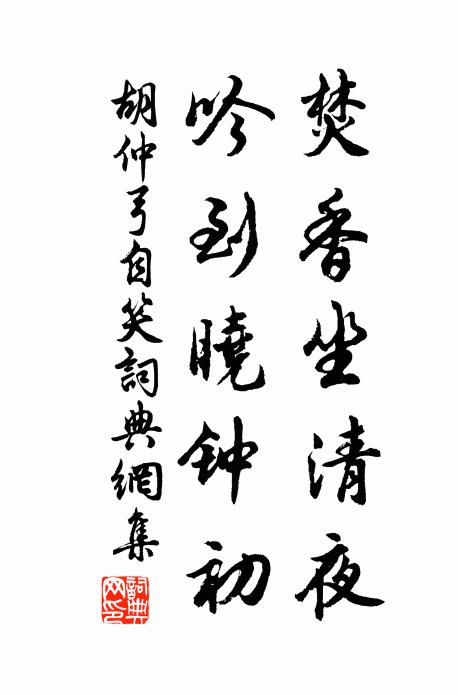 焚香坐清夜
吟到曉钟初
胡仲弓自笑詞典網集
詞典网印